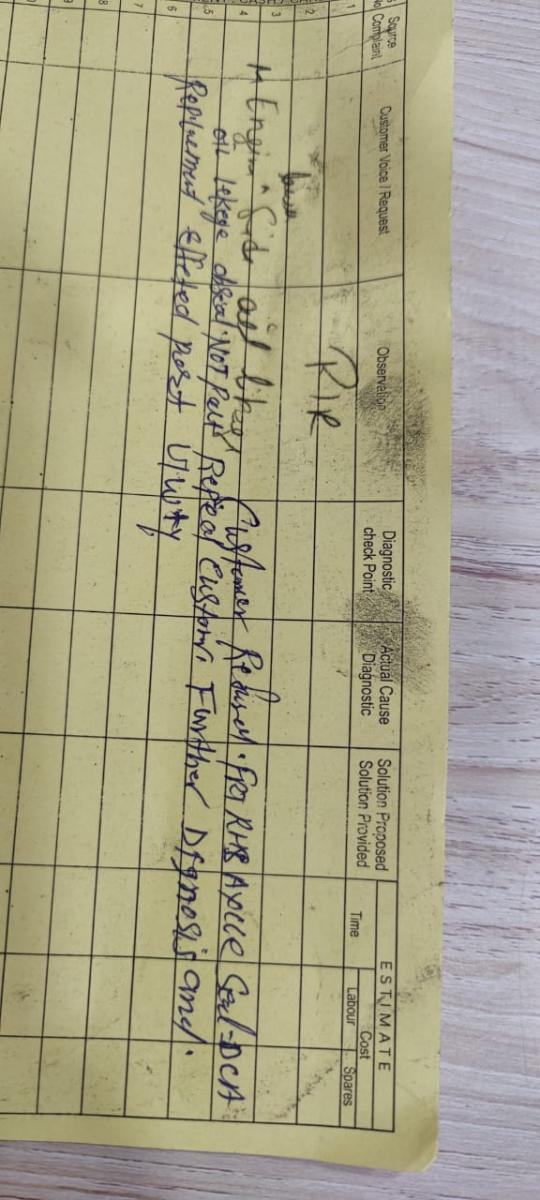 Source
Complaint
Customer Voice / Request
Observation
Diagnostic
check Point
Actual Cause
Diagnostic
Solution Proposed
Solution Provided
ESTIMATE
Time
Cost
Labour
Spares
1
2
RIR
3
4
Engin Side oil
Customer Refused. For RHS Axcle Seal-DCA
5
oil lekege NOT Part Repeat Custom. Further Dignosis and.
6
Replacement effected post U/W
7
8
9